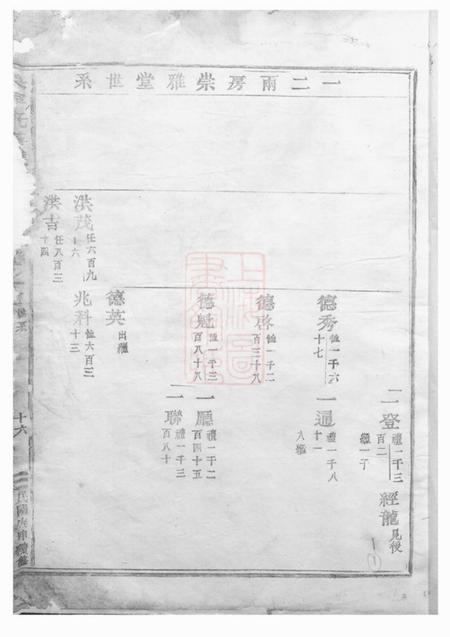 一二兩房崇雅堂世系
二登 禮一千三
百二
繼一丁
經龍 見後
德秀 恤一千六
十七
一通 禮一千八
十一
入繼
德啓 恤一千二
百三十八
德魁 恤一千三
百八十八
一廳 禮一千二
百四十五
一聯 禮一千三
百八十
德英 出繼
洪茂 任六百九
十六
兆科 恤六百三
十三
洪吉 任八百三
十四
十六